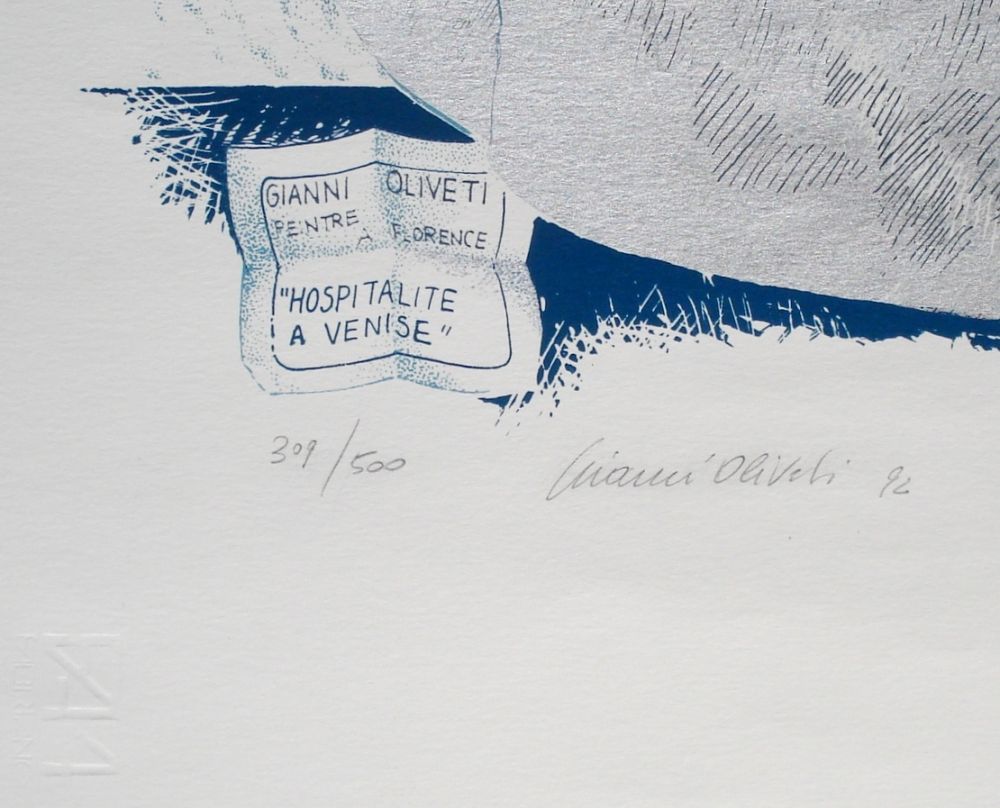 GIANNI OLIVETI
PEINTRE A FLORENCE
"HOSPITALITE
A VENISE"
309/500
Gianni Oliveti 92